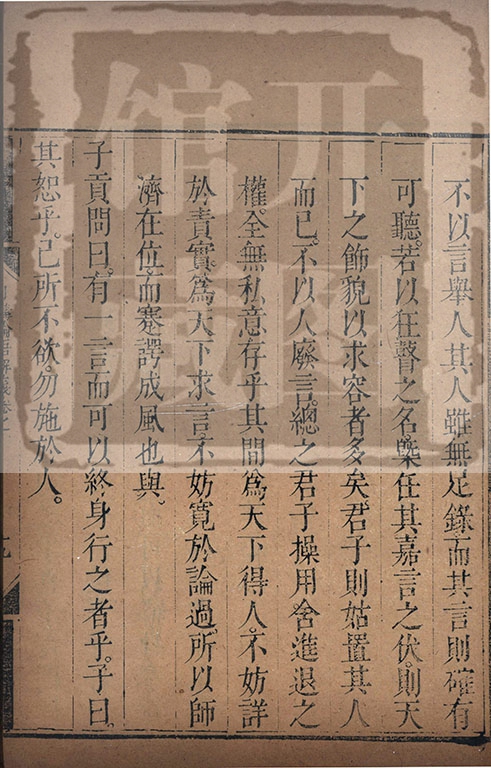 不以言舉人其人雖無足錄而其言則確有
可聽若以狂瞽之名槩任其嘉言之伏則天
下之飾貌以求容者多矣君子則姑置其人
而已不以人廢言總之君子操用舍進退之
權全無私意存乎其間爲天下得人不妨詳
於責實爲天下求言不妨寬於論過所以師
濟在位而蹇諤成風也與
子貢問曰有一言而可以終身行之者乎子曰
其恕乎己所不欲勿施於人